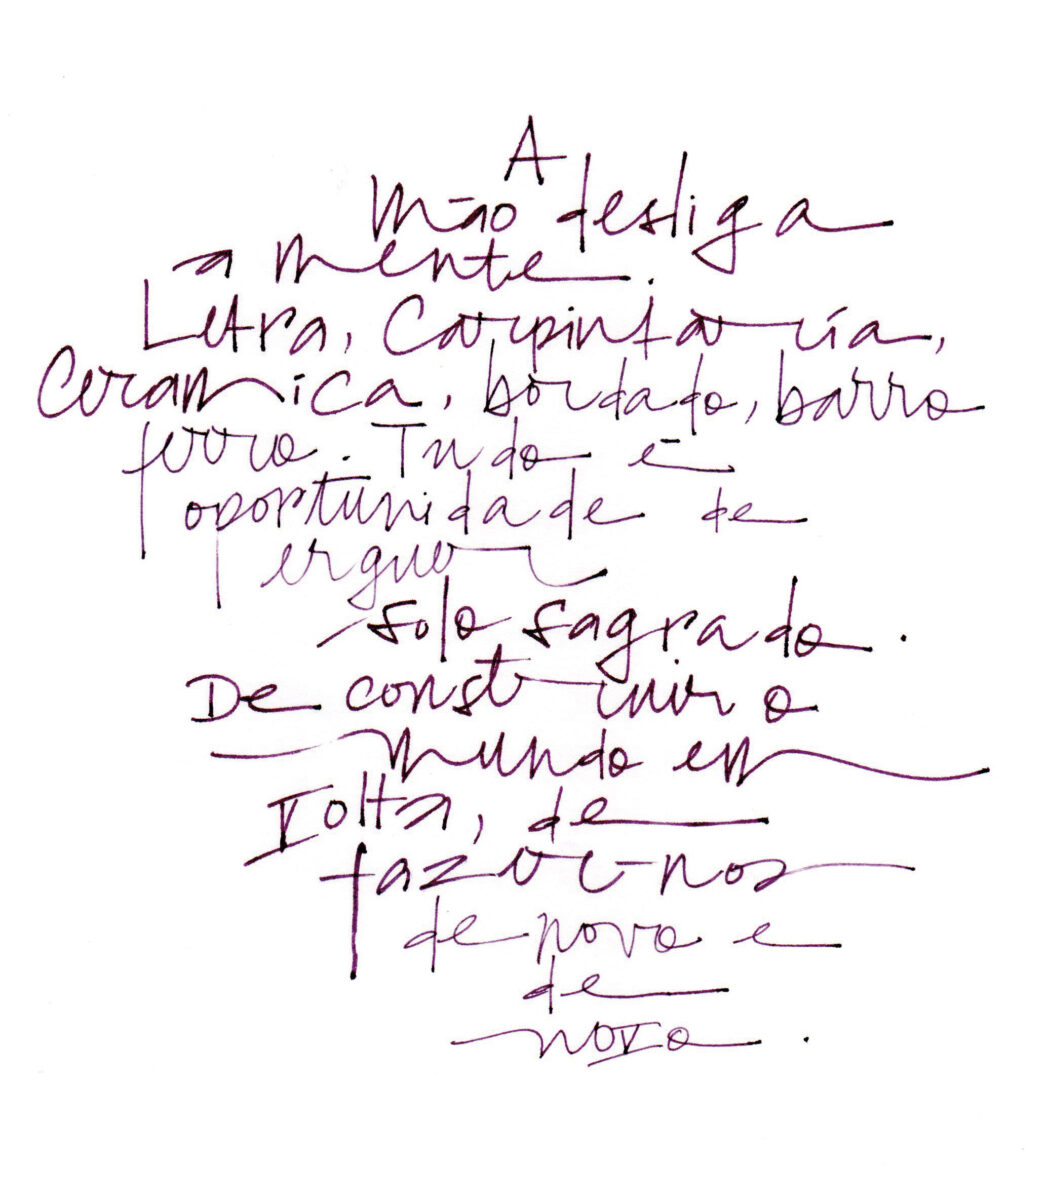 A
mão desliga
a mente.
Letra, Carpintaría,
Ceramica, bordado, barro
ferro. Tudo é
oportunidade de
erguer
solo sagrado.
De construir o
mundo em
volta, de
fazer-nos
de novo e
de
novo.